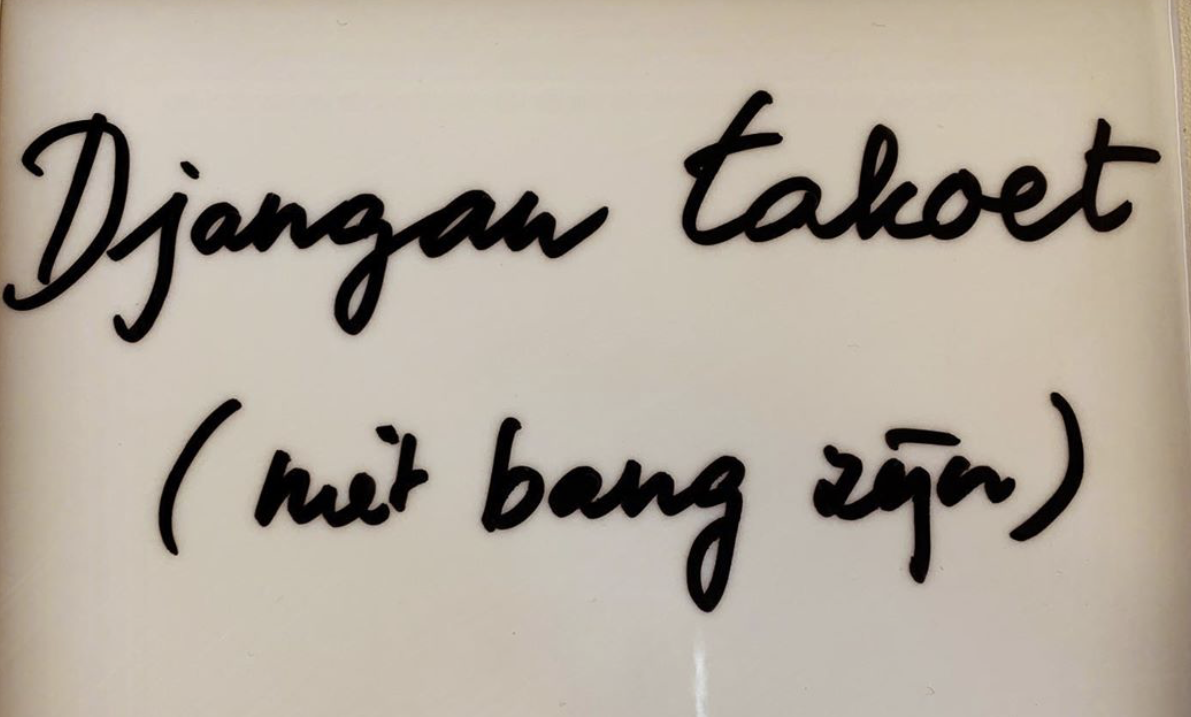 Djangan takoet
(niet bang zijn)